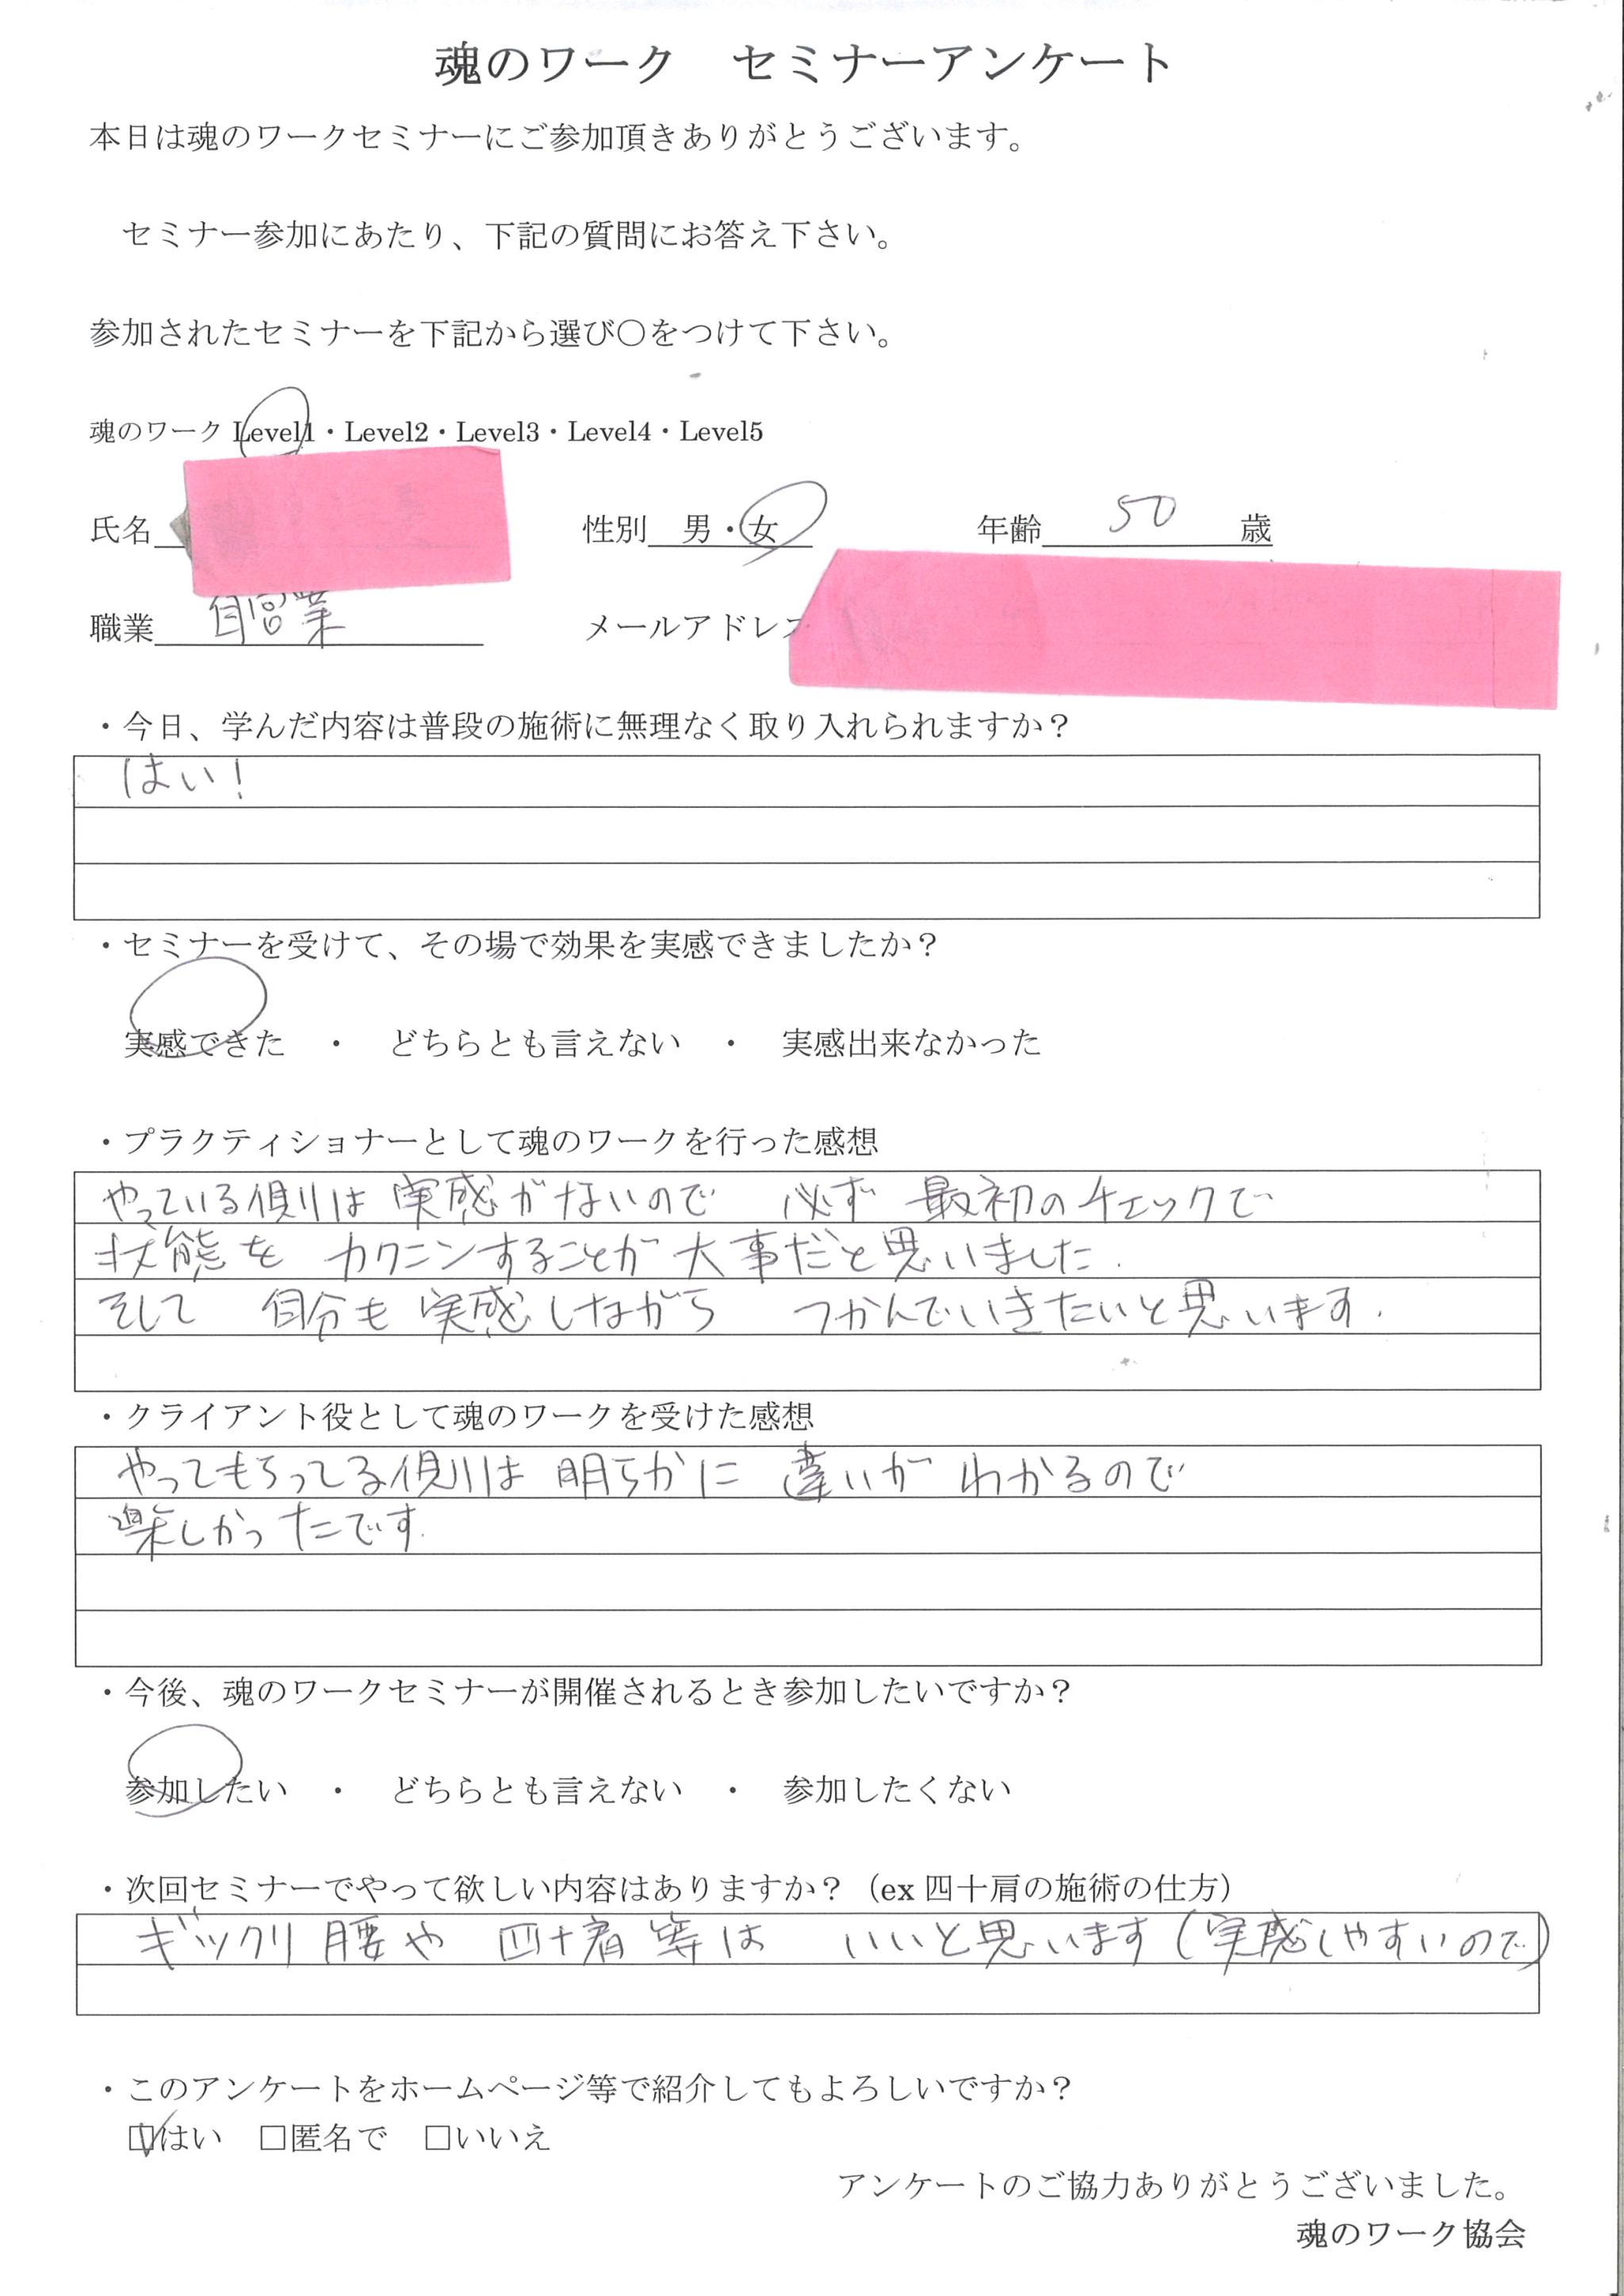 魂のワーク　セミナーアンケート
本日は魂のワークセミナーにご参加頂きありがとうございます。
セミナー参加にあたり、下記の質問にお答え下さい。
参加されたセミナーを下記から選び〇をつけて下さい。
魂のワーク Level1・Level2・Level3・Level4・Level5
氏名　性別　男・女　年齢 50 歳
職業 自営業　メールアドレス
・今日、学んだ内容は普段の施術に無理なく取り入れられますか？
はい！
・セミナーを受けて、その場で効果を実感できましたか？
実感できた　・　どちらとも言えない　・　実感出来なかった
・プラクティショナーとして魂のワークを行った感想
やっている側は実感がないので　必ず　最初のチェックで
状態を　カクニンすることが大事だと思いました.
そして　自分も実感しながら　つかんでいきたいと思います.
・クライアント役として魂のワークを受けた感想
やってもらってる側は明らかに違いがわかるので
楽しかったです.
・今後、魂のワークセミナーが開催されるとき参加したいですか？
参加したい　・　どちらとも言えない　・　参加したくない
・次回セミナーでやって欲しい内容はありますか？（ex 四十肩の施術の仕方）
ギックリ腰や　四十肩等は　いいと思います(実感しやすいので)
・このアンケートをホームページ等で紹介してもよろしいですか？
☑はい　□匿名で　□いいえ
アンケートのご協力ありがとうございました。
魂のワーク協会